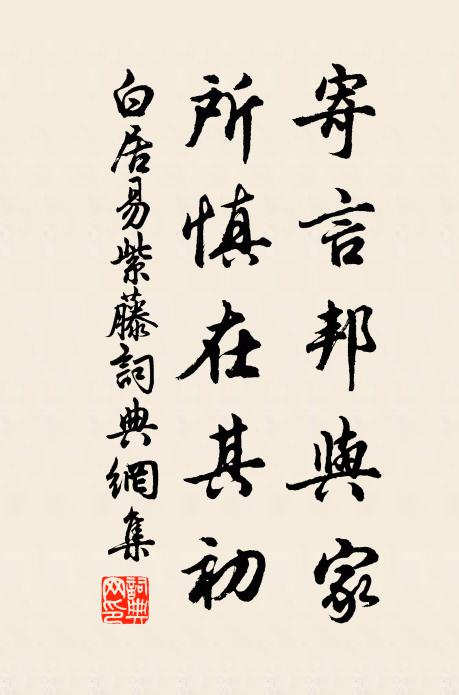 寄言邦與家
所慎在其初
白居易紫藤詞典網集
詞典网印